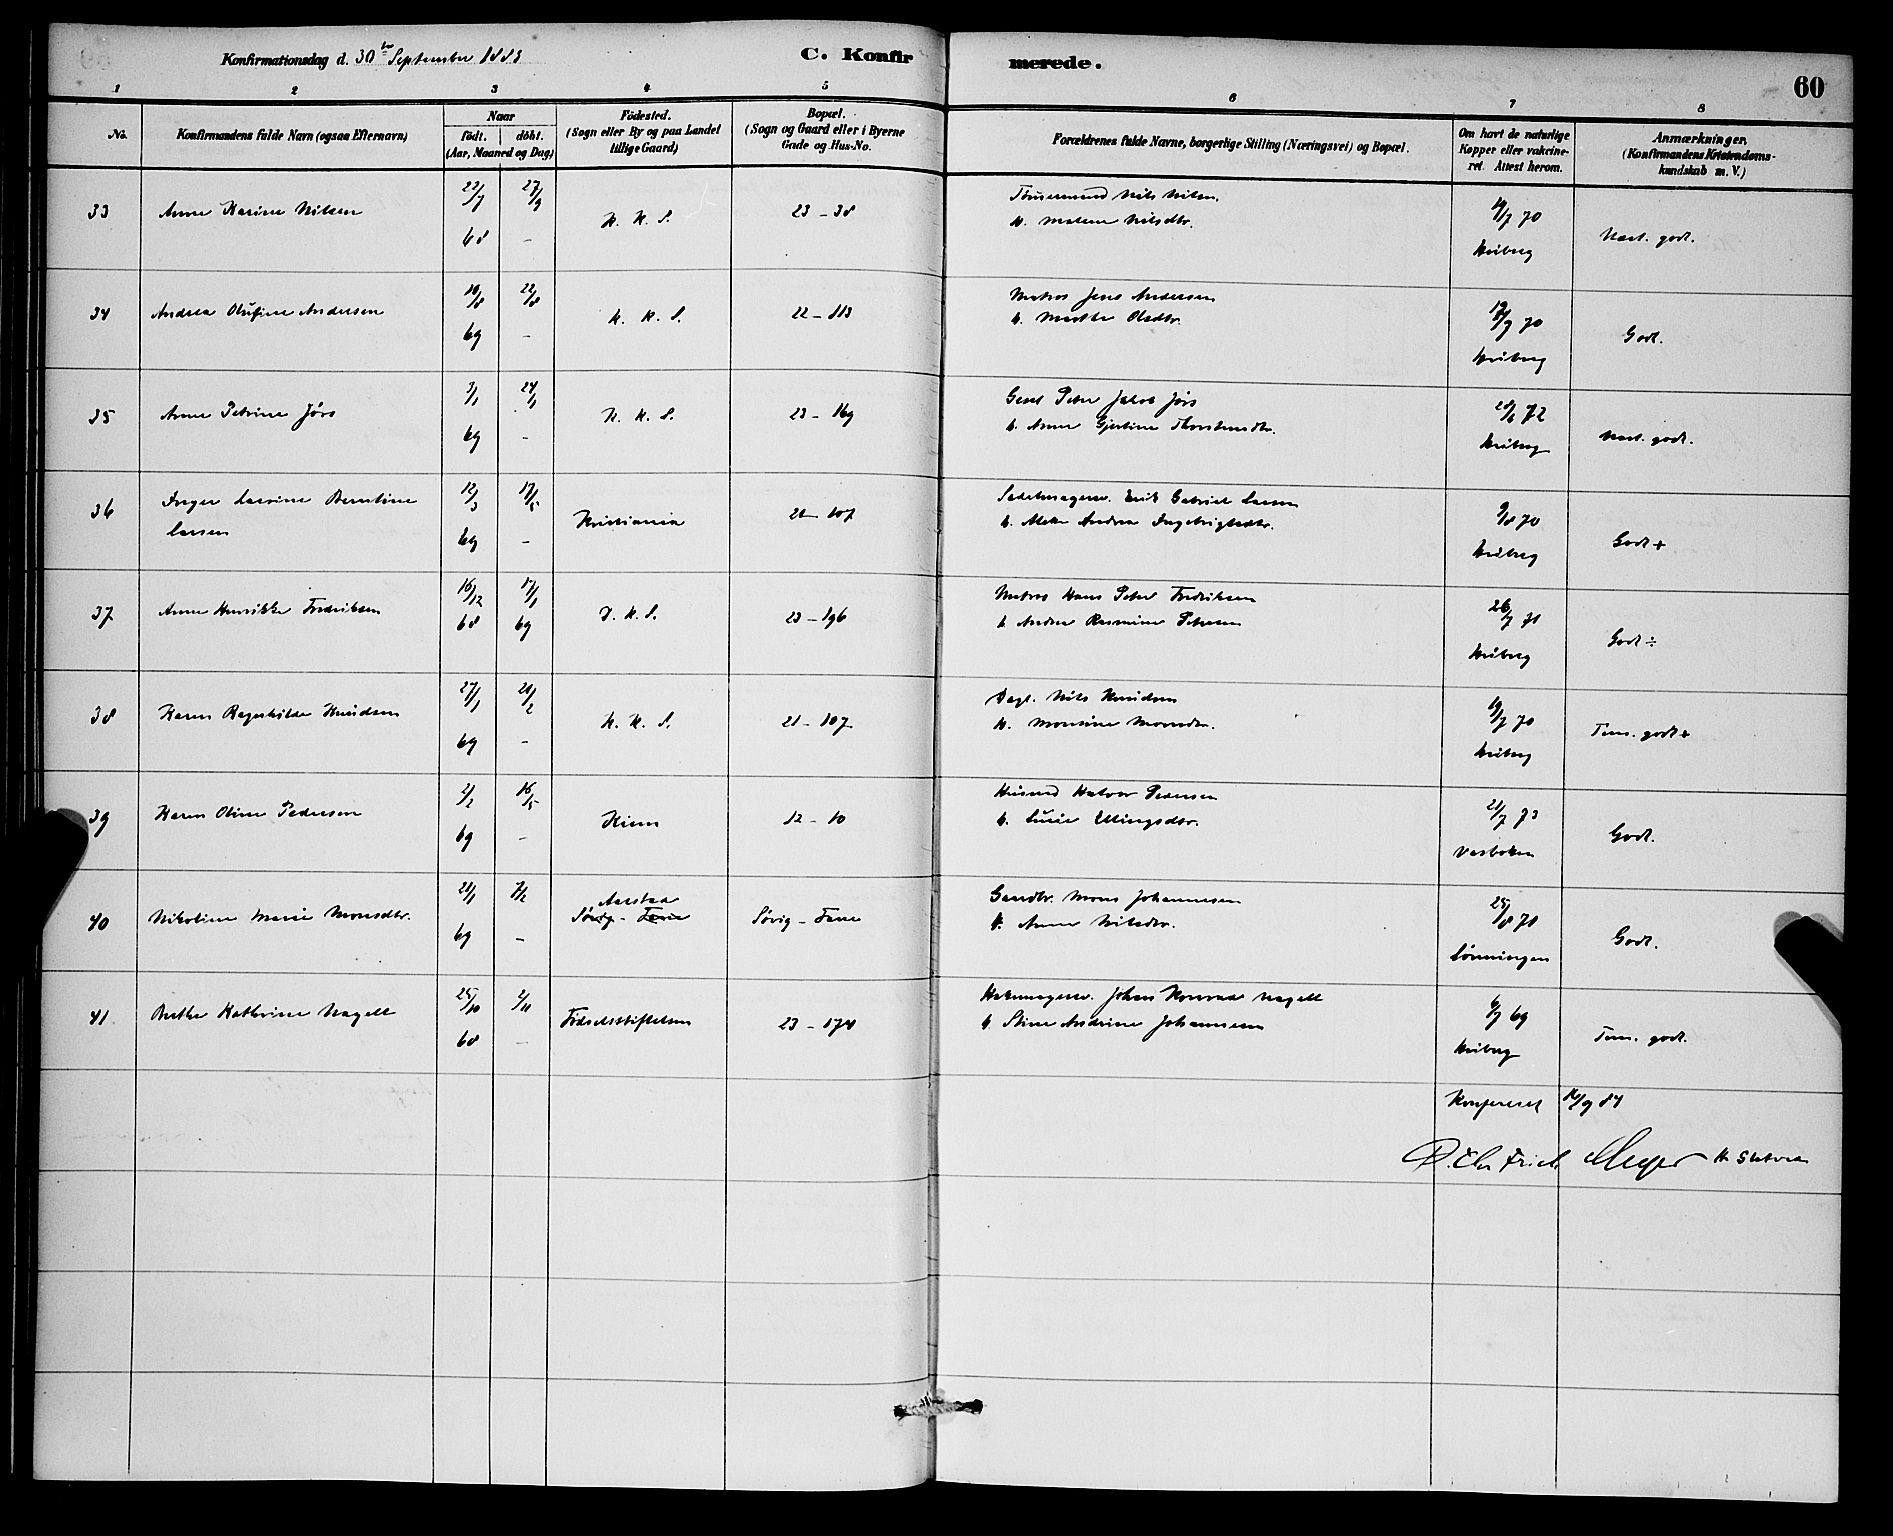 Konfirmationsdag d. 30te September 1883
C. Konfirmerede.
60
1 2 3 4 5 6 7 8
No.
Konfirmandens fulde Navn (ogsaa Efternavn)
Naar
født. døbt.
(Aar, Maaned og Dag)
Födested.
(Sogn eller By og paa Landet
tillige Gaard)
Bopæl.
(Sogn og Gaard eller i Byerne
Gade og Hus-No.
Forældrenes fulde Navne, borgerlige Stilling (Næringsvei) og Bopæl.
Om havt de naturlige
Kopper eller vakcine-
ret. Attest herom.
Anmærkninger.
(Konfirmandens Kristendoms-
kundskab m. V.)
33 Anne Karine Nilsen 22/7 68 27/9 - K. K. S. 23 - 38
Nils Nilsen.
h. Malene Nilsdtr.
/7 70 Heiberg
Næst. godt.
34 Andrea Olufine Andersen 10/8 69 22/8 - K. K. S. 22 - 113
Matros Jens Andersen
h. Marthe Olsdtr.
/7 70 Heiberg
Godt.
35 Anne Petrine Jørs 3/1 69 24/1 - K. K. S. 23 - 169
Gesel Peter Jakob Jørs
h. Anne Gjertine Thorstensdtr.
72 Heiberg
Næst. godt.
36 Inger Lavine Berntine
Larsen
12/3 69 17/5 - Kristiania 21 - 107
Sadelmagersv. Erik Gabriel Larsen
h. Andrea Ingebrigtsdtr.
9/8 70 Heiberg
Godt +
37 Anne Henrikke Fredriksen 16/12 68 17/1 69 D. K. S. 23 - 196
Matros Hans Peter Fredriksen
h. Andrea Rasmine Petersen
26/7 71 Heiberg
Godt ÷
38 Karen Ragnhilde Knudsen 27/1 69 21/2 - K. K. S. 21 - 107
Dagl. Nils Knudsen
h. Monsine Monsdtr.
/7 70 Heiberg
Tem. godt +
39 Karen Oline Pedersen 2/2 69 16/5 - Kinn 12 - 10
Husmd Halvor Pedersen
h. Lucie Ellingsdtr.
21/7 73
Godt.
40 Nikoline Marie Monsdtr. 21/1 69 7/2 -
Aarstad
Søvig - Fane
Søvig - Fane
Gaardbr. Mons Johannesen
h. Anne Nilsdtr.
25/8 70 Lønningen
Godt.
41 Berthe Kathrine Nagell 25/10 68 2/11 - Fødselsstiftelsen 23 - 174
Johan Konrad Nagell
h. Stine Andrine Johannesen
6/7 69 Heiberg
Tem. godt.
Konfereret 16/9 84
D. Chr Friele Meyer